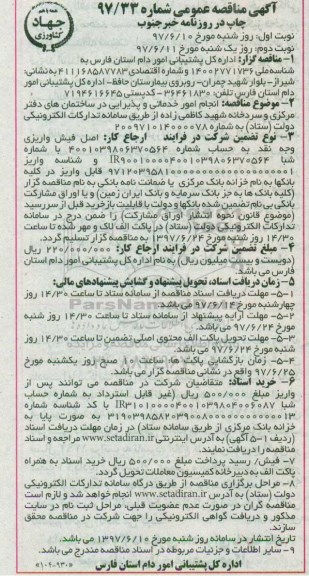 آگهی مناقصه عمومی شماره ۹۷/۳۳
چاپ در روزنامه خبرجنوب
جهاد
کشاورزی
نوبت اول: روز شنبه مورخ ۹۷/۶/۱۰
نوبت دوم: روز یک شنبه مورخ ۹۷/۶/۱۱
۱- مناقصه گزار: اداره کل پشتیبانی امور دام استان فارس به
شناسه ملی ۱۴۰۰۲۷۷۱۷۳۶ و شماره اقتصادی ۴۱۱۱۶۸۵۸۷۷۸۳ به نشانی:
شیراز- بلوار شهید چمران- روبروی بیمارستان حافظ- اداره پشتیبانی امور
دام استان فارس تلفن: ۳۶۴۶۱۸۳۰ - کدپستی ۷۱۹۴۶۱۶۶۴۵
۲- موضوع مناقصه: انجام امور خدماتی و پذیرایی در ساختمان های دفتر
مرکزی و سردخانه شهید کاظمی زاده از طریق سامانه تدارکات الکترونیکی
دولت (ستاد) به شماره ۲۰۰۹۷۱۰۱۴۰۰۰۰۷۸
۳- نوع تضمین شرکت در فرایند ارجاع کار: اصل فیش واریزی
وجه نقد به حساب شماره ۴۰۰۱۰۳۹۸۰۶۳۷۰۵۶۴ با شماره
شبا IR۹۰۰۱۰۰۰۰۴۰۰۱۰۳۹۸۰۶۳۷۰۵۶۴ و شناسه واریز
قابل واریز در کلیه
بانکها به نام خزانه بانک مرکزی یا ضمانت نامه بانکی به نام مناقصه گزار
(کلیه بانک ها به جز بانک سرمایه و بانک ایران زمین) و یا اوراق مشارکت
بانکی بی نام تضمین شده بانکها و دولت با قابلیت بازخرید قبل از سررسید
(موضوع قانون نحوه انتشار اوراق مشارکت) را ضمن درج در سامانه
تدارکات الکترونیکی دولت (ستاد) در پاکت الف لاک و مهر شده تا ساعت
۱۴/۳۰ روز شنبه مورخ ۱۳۹۷/۶/۲۴ به مناقصه گزار تسلیم گردد.
۴- مبلغ تضمین شرکت در فرایند ارجاع کار: ۲۲۰/۰۰۰/۰۰۰ ریال
(دویست و بیست میلیون ریال) به نام اداره کل پشتیبانی امور دام استان
فارس می باشد.
۵- زمان دریافت اسناد، تحویل پیشنهاد و گشایش پیشنهادهای مالی:
۱-۵- مهلت دریافت اسناد مناقصه از سامانه ستاد تا ساعت ۱۴/۳۰ روز
چهارشنبه مورخ ۹۷/۶/۱۴ می باشد.
۲-۵- مهلت ارایه پیشنهاد از سامانه ستاد تا ساعت ۱۴/۳۰ روز شنبه
مورخ ۹۷/۶/۲۴ می باشد.
۳-۵- مهلت تحویل پاکت الف محتوی اصلی تضمین تا ساعت ۱۴/۳۰ روز
شنبه مورخ ۹۷/۶/۲۴ می باشد.
۴-۵- زمان بازگشایی پاکت ها ساعت ۱۰ صبح روز یکشنبه مورخ
۹۷/۶/۲۵ واقع در نشانی مناقصه گزار می باشد.
۶- خرید اسناد: متقاضیان شرکت در مناقصه می توانند پس از
واریز مبلغ ۵۰۰/۰۰۰ ریال (غیر قابل استرداد) به شماره حساب
شبا با کد شناسه شماره
به صورت پایا به
خزانه بانک مرکزی از طریق سامانه ستاد) در زمان مهلت دریافت اسناد
(ردیف ۱-۵ آگهی) به آدرس اینترنتی www.setadiran.ir مراجعه و اسناد
مناقصه را دریافت نمایند.
۷- فیش/ رسید پرداخت مبلغ ۵۰۰/۰۰۰ ریال خرید اسناد به همراه
پاکت الف به دبیرخانه کمیسیون معاملات تحویل گردد.
۸- مراحل برگزاری مناقصه از طریق درگاه سامانه تدارکات الکترونیکی
دولت (ستاد) به آدرس www.setadiran.ir انجام خواهد شد و لازم است
مناقصه گران در صورت عدم عضویت قبلی، مراحل ثبت نام در سایت
مذکور و دریافت گواهی الکترونیکی را جهت شرکت در مناقصه محقق
سازند.
تاریخ انتشار در سامانه روز شنبه مورخ ۱۳۹۷/۶/۱۰ می باشد.
۹- سایر اطلاعات و جزئیات مربوطه در اسناد مناقصه مندرج می باشد.
اداره کل پشتیبانی امور دام استان فارس
«۱۰۹۰۹۳۰»